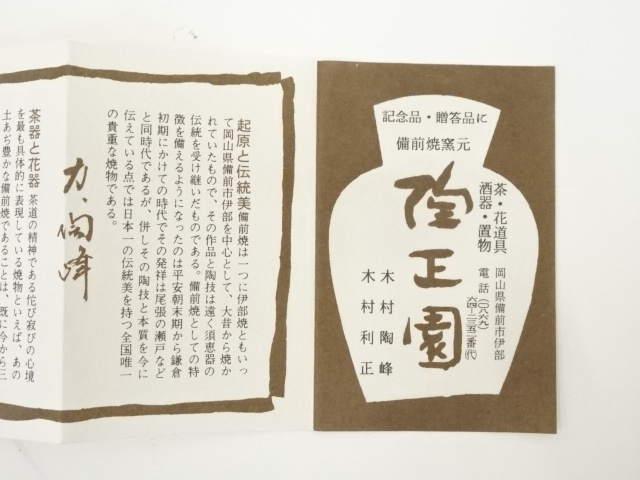 記念品・贈答品に
備前焼窯元
茶・花道具
酒器・置物
陶正園
岡山県備前市伊部
電話(〇八六九)
六四-三五二一番(代)
木村陶峰
木村利正
起原と伝統美 備前焼は一つに伊部焼ともいっ
て岡山県備前市伊部を中心として、大昔から焼か
れていたもので、その作品と陶技は遠く須恵器の
伝統を受け継いだものである。備前焼としての特
徴を備えるようになったのは平安朝末期から鎌倉
初期にかけての時代でその発祥は尾張の瀬戸など
と同時代であるが、併しその陶技と本質を今に
伝えている点では日本一の伝統美を持つ全国唯一
の貴重な焼物である。
陶峰
茶器と花器 茶道の精神である侘び寂びの心境
を最も具体的に表現している焼物といえば、あの
土あぢ豊かな備前焼であることは、既に今から三